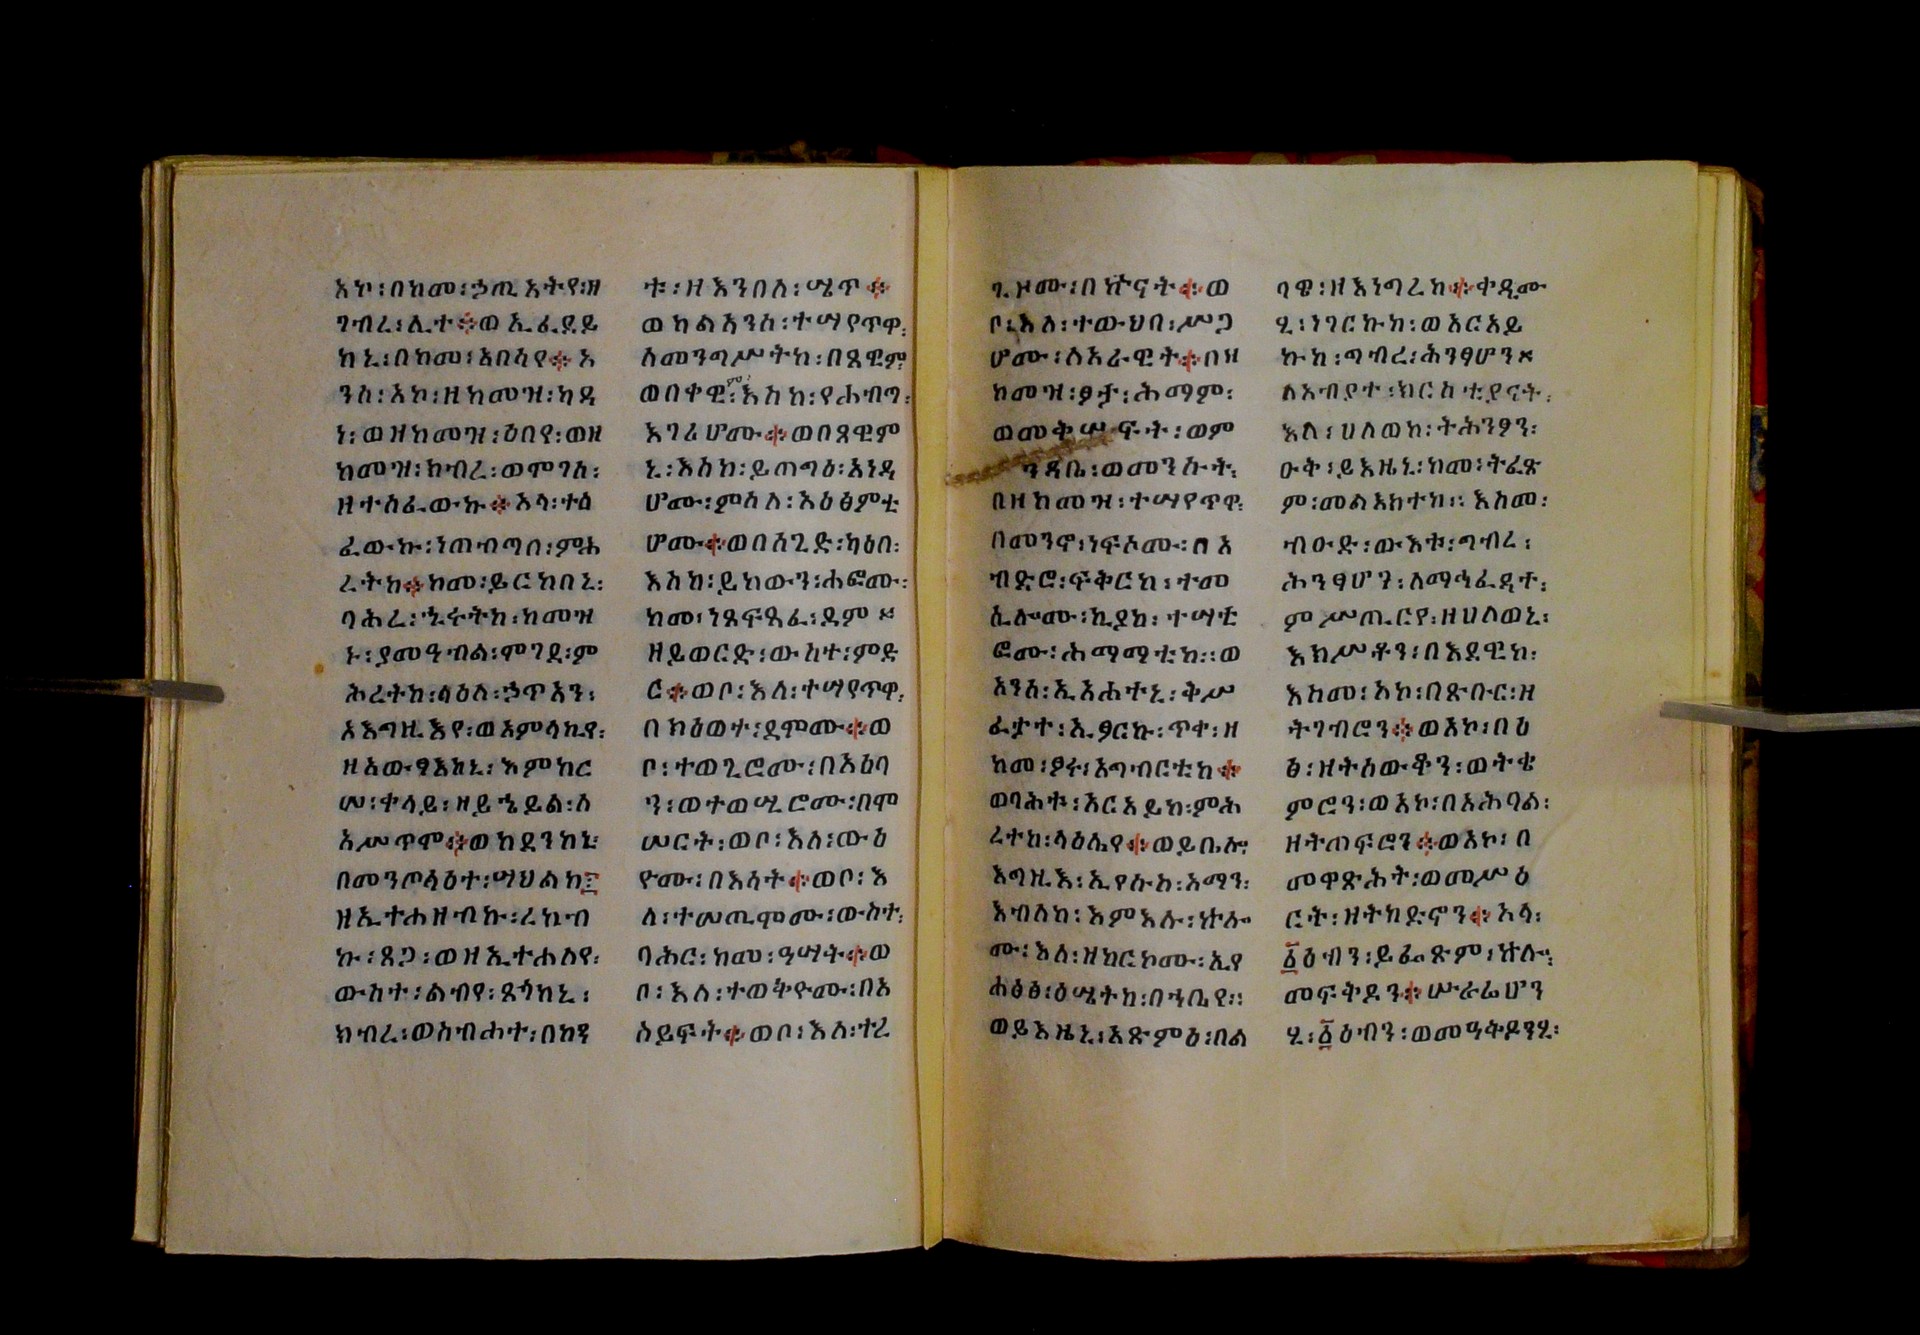 አኮ፡በከመ፡ኃጢአትየ፡ዘ
ገብረ፡ሊተ፨ወኢፈደይ
ከኒ፡በከመ፡አበሳየ፨አ
ንሰ፡አኮ፡ዘከመዝ፡ካዳ
ነ፡ወዘከመዝ፡ዕበየ፡ወዘ
ከመዝ፡ክብረ፡ወሞገሰ፡
ዘተሰፈውኩ፨አላ፡ተሰ
ፈውኩ፡ነጠብጣበ፡ምሕ
ረትከ፨ከመ፡ይርከበኒ፡
ባሕረ፡ኂሩትከ፡ከመዝ
ኑ፡ያመዓብል፡ሞገደ፡ም
ሕረትከ፡ላዕለ፡ኃጥአን፡
አእግዚእየ፡ወአምላኪየ፡
ዘአውፃእከኒ፡እምከር
ሠ፡ቀላይ፡ዘይኄይል፡ለ
አሥጥሞ፨ወከደንከኒ፡
በመንጦላዕተ፡ሣህልከ፤
ዘኢተሐዘብኩ፡ረኪብ
ኩ፡ጸጋ፡ወዘኢተሐሰየ፡
ውስተ፡ልብየ፡ጸጎከኒ፡
ክብረ፡ወስብሐተ፡በከዳ
ቱ፡ዘእንበለ፡ሤጥ፨
ወከልአንሰ፡ተሣየጥዋ፡
ለመንግሥትከ፡በጸዊም፡
ወበቀዊም፡እስከ፡የሐብጥ፡
እገሪሆሙ፨ወበጸዊም
ኒ፡እስከ፡ይጠግዕ፡አነዳ
ሆሙ፡ምስለ፡አዕፅምቲ
ሆሙ፨ወበሰጊድ፡ካዕበ፡
እስከ፡ይከውን፡ሐፎሙ፡
ከመ፡ነጸፍጻፈ፡ደም፠
ዘይወርድ፡ውስተ፡ምድ
ር፨ወቦ፡እለ፡ተሣየጥዋ፡
በክዕወተ፡ደሞሙ፨ወ
ቦ፡ተወጊሮሙ፡በአዕባ
ን፡ወተወሢሮሙ፡በሞ
ሠርት፡ወቦ፡እለ፡ውዕ
ዮሙ፡በእሳት፨ወቦ፡እ
ለ፡ተሠጢሞሙ፡ውስተ፡
ባሕር፡ከመ፡ዓሣት፨ወ
ቦ፡እለ፡ተወቅዮሙ፡በአ
ስይፍት፨ወቦ፡እለ፡ተረ
ጊዞሙ፡በኵናት፨ወ
ቦ፡እለ፡ተውህበ፡ሥጋ
ሆሙ፡ለአራዊት፨በዘ
ከመዝ፡ፃዓ፡ሕማም፡
ወመቅሠፍት፡ወም
ንዳቤ፡ወመንሱት፡
በዘከመዝ፡ተሣየጥዋ፡
በመንኖ፡ነፍሶሙ፡በአ
ብድሮ፡ፍቅርከ፡ተመ
ሲሎሙ፡ኪያከ፡ተሣቲ
ፎሙ፡ሕማማቲከ፡፡ወ
አንሰ፡ኢአሕተኒ፡ቅሥ
ፈታተ፡ኢፃርኩ፡ጥቀ፡ዘ
ከመ፡ፆሩ፡አግብርቲከ፨
ወባሕቱ፡አርአይከ፡ምሕ
ረተከ፡ላዕሌየ፨ወይቤሎ፡
እግዚእ፡ኢየሱስ፡አማን፡
እብለከ፡እምእሉ፡ኵሎ
ሙ፡እለ፡ዘከርኮሙ፡ኢየ
ሐፅፅ፡ዕሤትከ፡በኀቤየ፡፡
ወይእዜኒ፡አጽምዕ፡በል
ባዌ፡ዘእነግረከ፨ቀዲሙ
ሂ፡ነገርኩከ፡ወአርአይ
ኩከ፡ግብረ፡ሕንፃሆን፠
ለአብያተ፡ክርስቲያናት፡
እለ፡ሀለወከ፡ትሕንፃን፡
ዑቅ፡ይእዜኒ፡ከመ፡ትፈጽ
ም፡መልእክተከ፡፡እስመ፡
ብዑድ፡ውእቱ፡ግብረ፡
ሕንፃሆን፡ለማኅፈዳት፡
ምሥጢርየ፡ዘሀለወኒ፡
እክሥቶን፡በእደዊከ፡
እስመ፡አኮ፡በጽቡር፡ዘ
ትገብሮን፨ወአኮ፡በዕ
ፅ፡ዘትሰውቆን፡ወትቄ
ምሮን፡ወአኮ፡በአሕባል፡
ዘትጠፍሮን፨ወአኮ፡በ
መዋጽሕት፡ወመሥዕ
ርት፡ዘትክድኖን፨አላ፡
፩ዕብን፡ይፌጽም፡ኵሎ፡
መፍቅዶን፨ሡራሬሆን
ሂ፡፩ዕብን፡ወመዓትዶንሂ፡